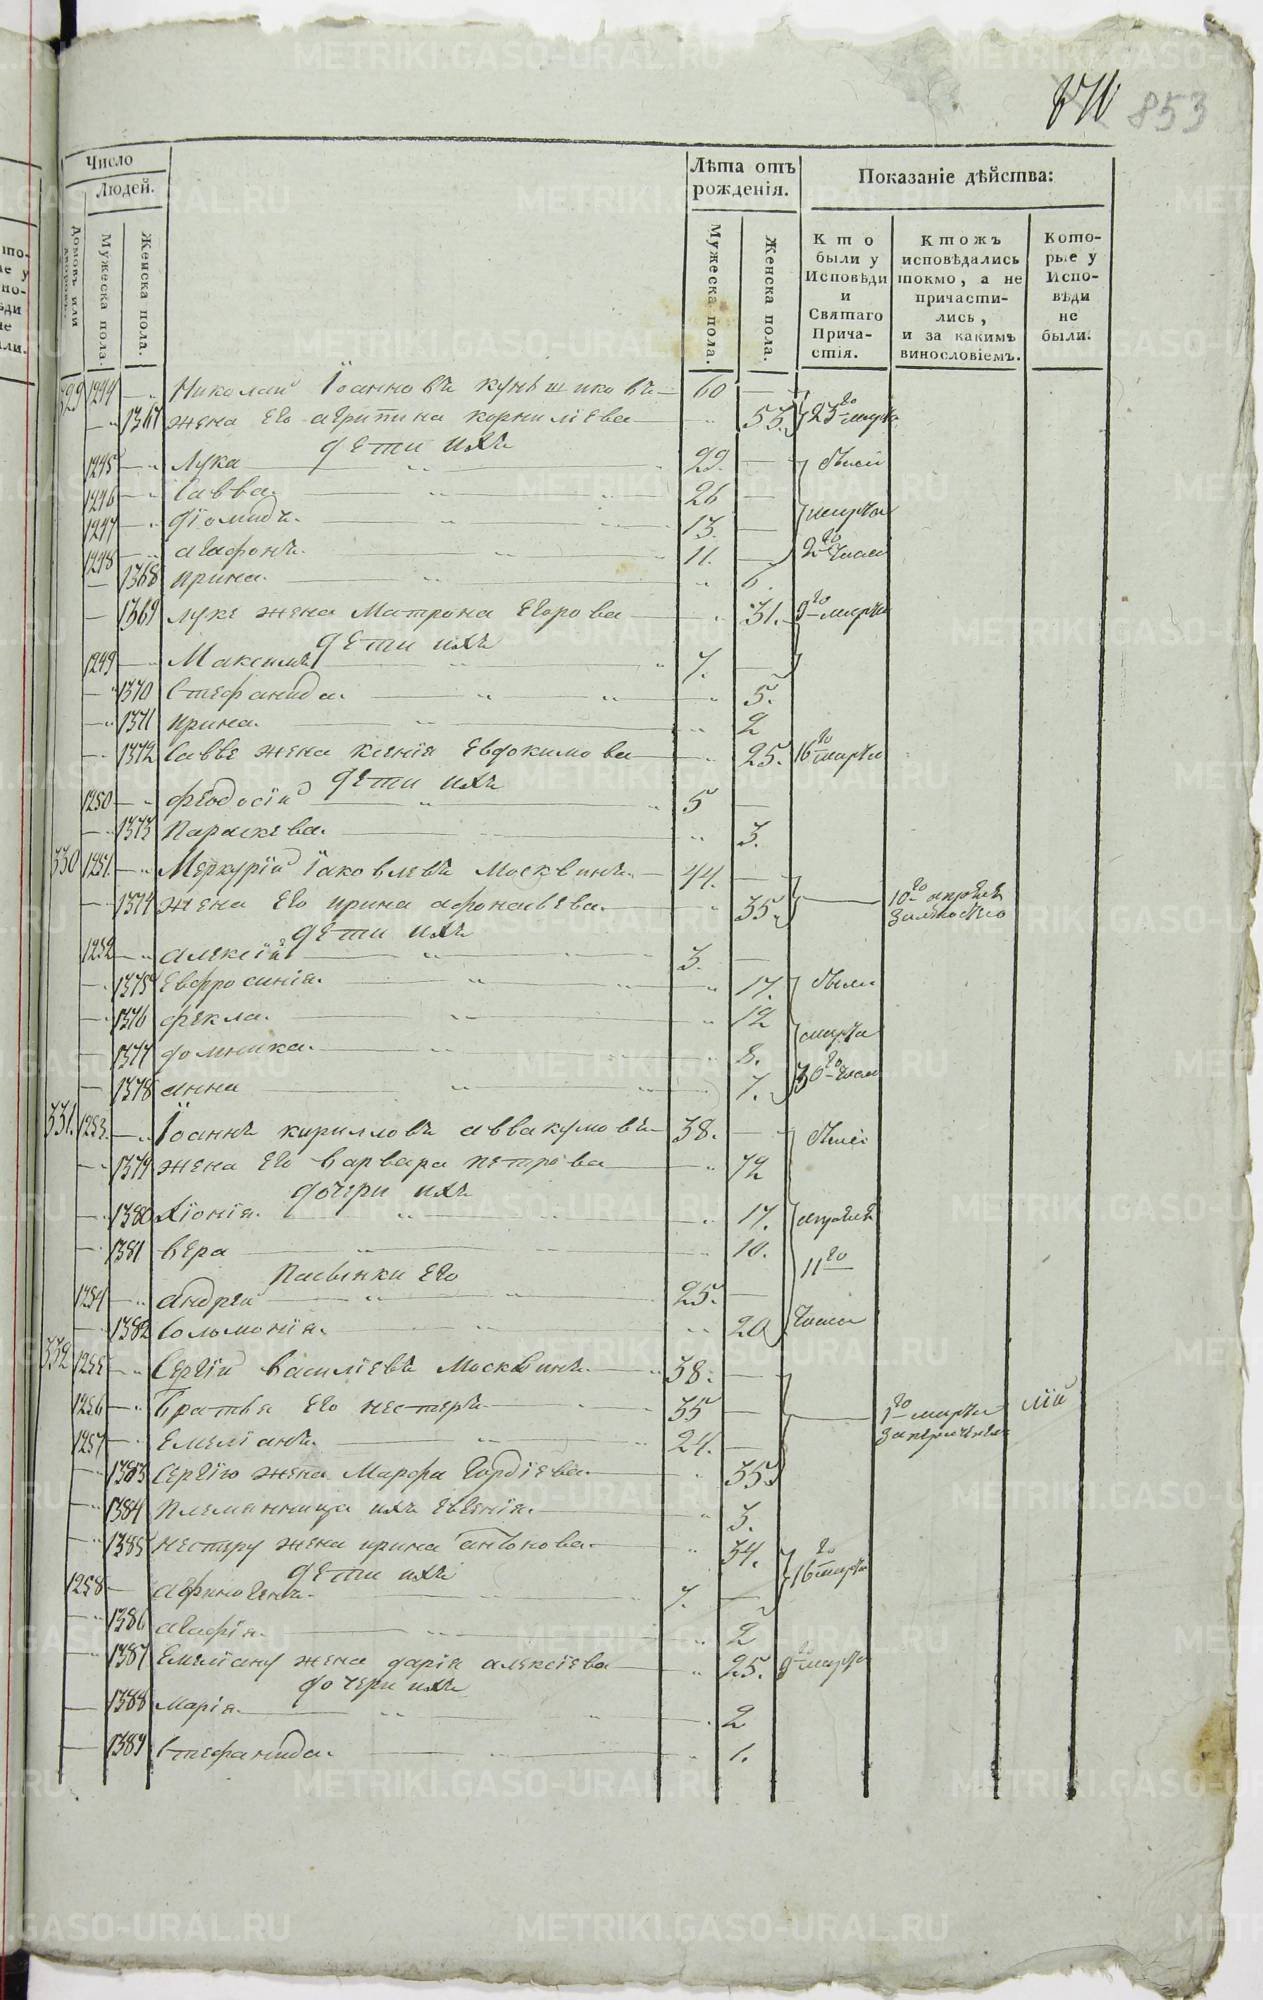 853
Число
Людей.
Домовъ или дворовъ.
Мужеска пола.
Женска пола.
Лѣта отъ рожденія.
Мужеска пола.
Женска пола.
Показаніе дѣйства:
Кто были у Исповѣди и Святаго Прича-стія.
Ктожъ исповѣдались токмо, а не причасти-лись, и за какимъ винословіемъ.
Кото-рые у Испо-вѣди не были.
329 1244 Николай Їоанновъ 60
1367 жена его агрипина корнилїева 55. 23го марта
дети ихъ
1245 Лука 29. были
1246 Савва 26
1247 дїомидъ 13. марта
1248 агафонъ 11. 2го числа
1368 ирина 6.
1369 луке жена Матрона Егорова 31. 9го марта
дети ихъ
1249 Максимъ 7.
1370 Стефанида 5.
1371 ирина 2
1372 Савве жена ксенїя Евдокимова 25. 16го марта
дети ихъ
1250 феодосїй 5
1373 Параскева 3.
330 1251. Меркурїй Їаковлевъ Москвинъ 44.
1374 жена Его ирина афонасьева 35. 10го апреля
дети ихъ
1252 алексїй 3.
1375 Евфросинїя 17. были
1376 фекла 12 марта
1377 домника 8.
1378 анна 7. 30го числа
331. 1253. Їоаннъ кирилловъ аввакумовъ 38. были
1379 жена Его варвара петрова 42
дочери ихъ
1380 Хїонїя 17. апреля
1381 вера 10. 11го
Пасынки Его
1254 андрей 25. числа
1382 Соломонїя 20
332 1255 Сергїй Василїевъ Москвинъ 38.
1256 Братья Его нестеръ 35 1го марта
1257 Емелїанъ 24.
1383 Сергїю жена Марфа Гордїева 35
1384 племянница ихъ Евгенїя 3.
1385 нестеру жена ирина антонова 34. 16го марта
дети ихъ
1258 афиногенъ 7.
1386 агафїя 2
1387 Емелїану жена дарїя алексїева 25. 9го марта
дочери ихъ
1388 Марїя 2
1389 Стефанида 1.
METRIKI.GASO-URAL.RU